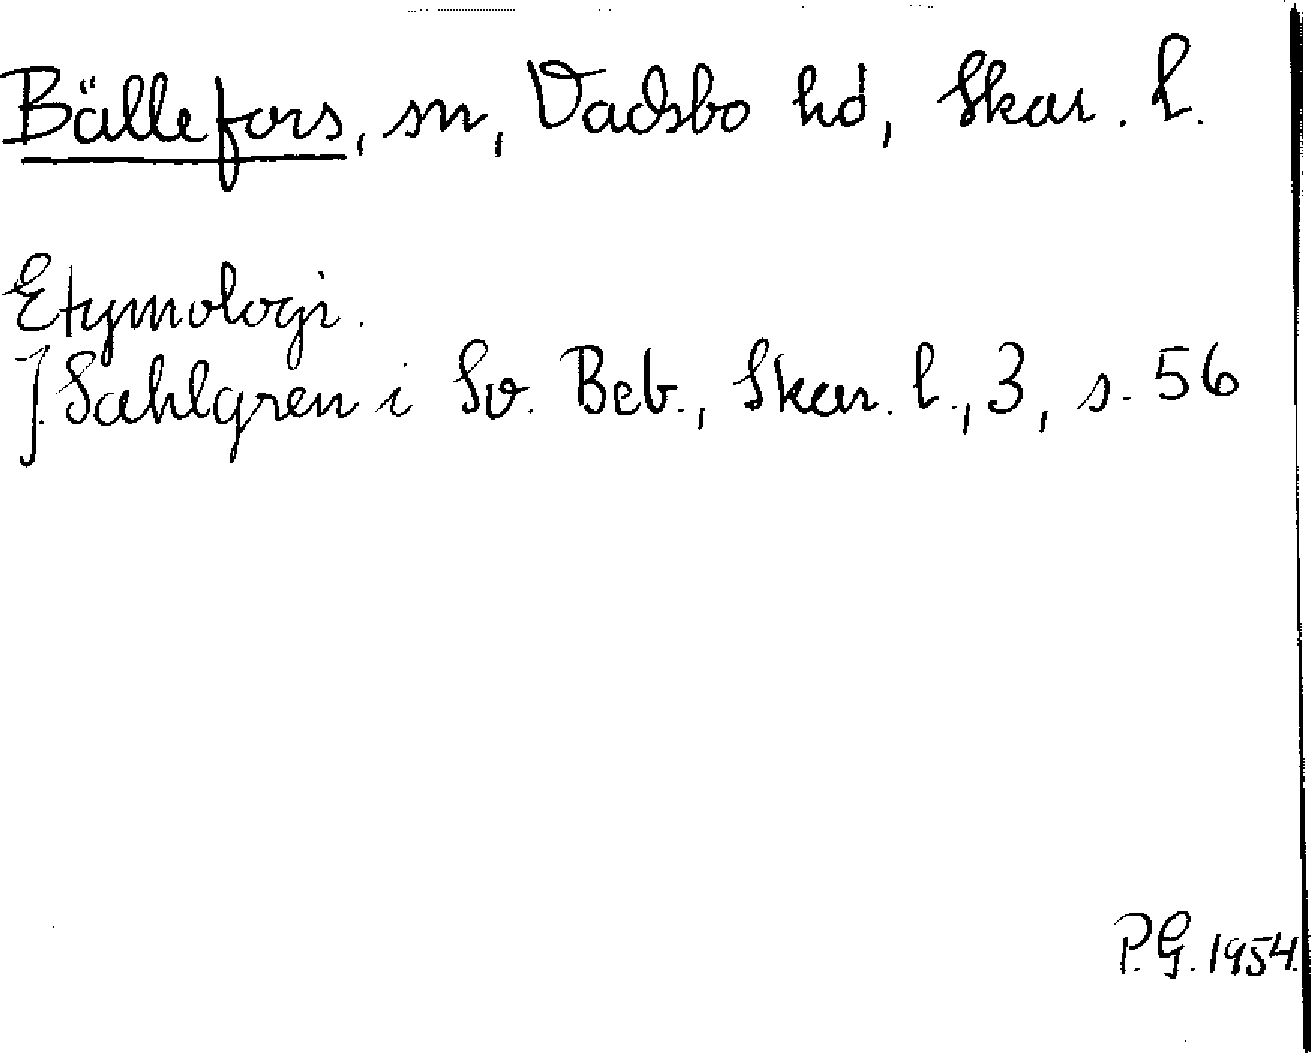 Bällefors, sn, Vadsbo hd, Skar. l.
Etymologi.
J. Sahlgren i Sv. Beb., Skar. l., 3, s. 56
P.G. 1954.